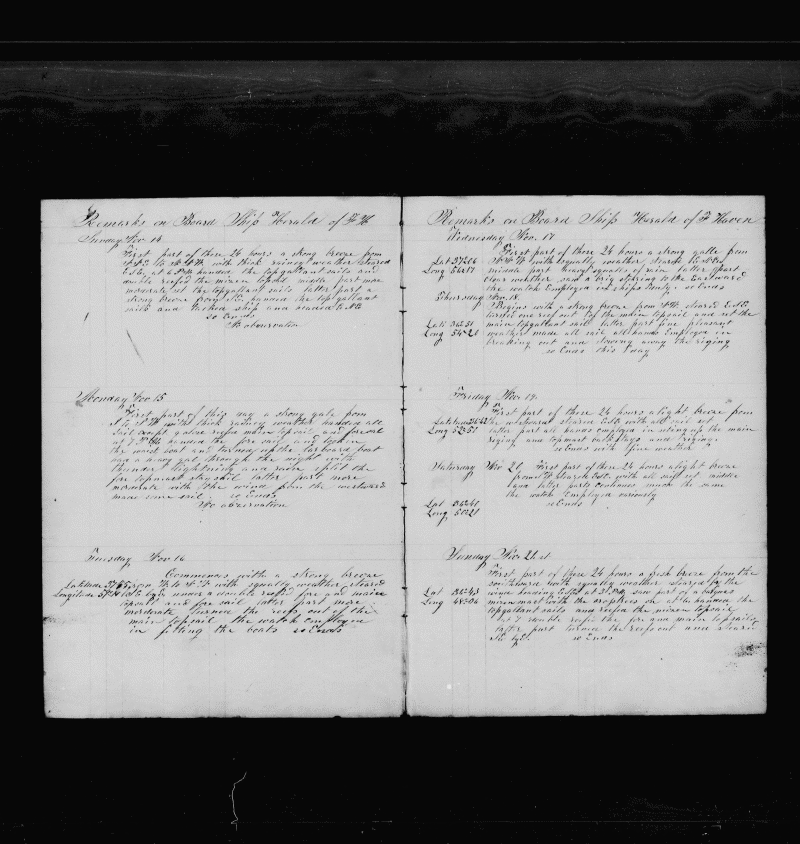 Remarks on Board Ship Herald of F H
Sunday Nov 14
First part of these 24 hours a strong breeze from
with thick rainey weather steared
at 6 P.M. handed the topgallant sails and
double reefed the mizen topsail middle part more
moderate set the topgallant sails latter part a
strong breeze from handed the topgallant
sails and tacked ship and steared to
so Ends
No observation
Monday Nov 15
First part of this day a strong gale from
with thick rainey weather handed all
sail except close reefed main topsail and foresail
at 7 P.M. handed the fore sail and took in
the waist boat and turned up the larboard boat
saw a heavy gale through the night with
thunder lightning and rain split the
fore topmast staysail latter part more
moderate with the wind from the westward
made some sail so Ends
No observation
Tuesday Nov 16
Commences with a strong breeze
Latitude from with squally weather steared
Longitude under a double reefed fore and main
topsail and fore sail latter part more
moderate turned the reefs out of the
main topsail the watch employed
in fitting the boats so Ends
Remarks on Board Ship Herald of F Haven
Wednesday Nov. 17
First part of these 24 hours a strong galle from
Lat with squally weather steared
Long middle part heavy squalls of rain latter part
clear weather saw a brig stearing to the Eastward
the watch Employed on ships duty. so Ends
Thursday Nov. 18
Begins with a strong breeze from steared
turned one reef out of the main topsail and set the
Lat main topgallant sail latter part fine pleasant
Long weather made all sail all hands Employed in
breaking out and stowing away the riging
so Ends this day
Friday Nov 19
First part of these 24 hours a light breeze from
Latitude the westward steared with all sail set
Long latter part all hands employed in setting up the main
riging and topmast backstays and riging
so Ends with fine weather
Saturday Nov 20 First part of these 24 hours a light breeze
from steared with all sail set middle
and latter parts continues much the same
Lat the watch Employed variously
Long so Ends
Sunday Nov. 21 st
First part of these 24 hours a fresh breeze from the
southward with squally weather steared by the
Lat wind heading saw part of a
Long mizen mast with the at handed the
topgallant sails and reefed the mizen topsail
at 7 double reefed the fore and main topsails
latter part turned the reefs out and steared
so Ends